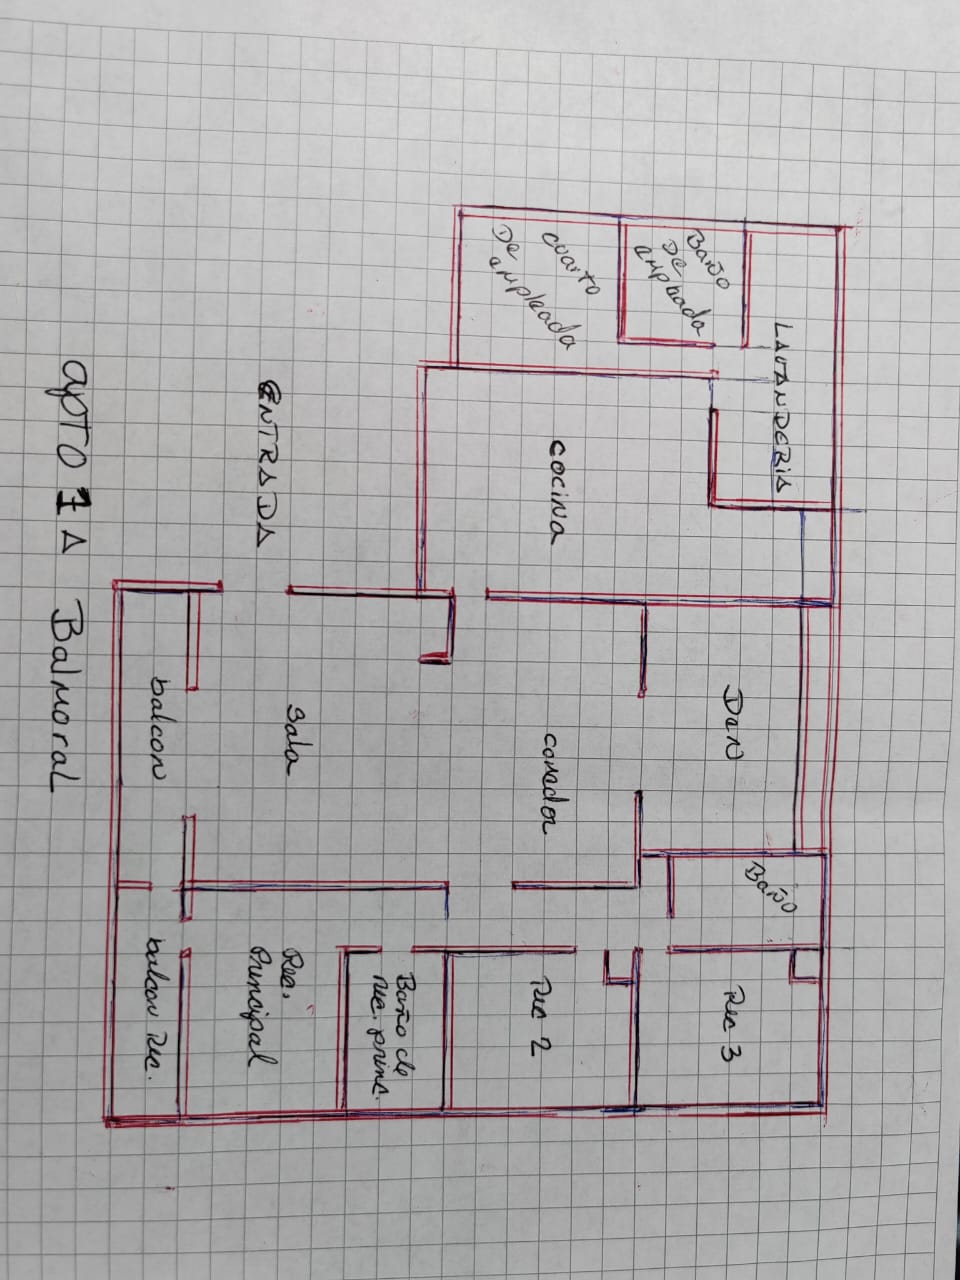 LAVANDERIA
Baño
De
empleada
DeN
Baño
Rec 3
cuarto
De
empleada
cocina
comedor
Rec 2
Baño de
rec. princ.
Sala
Rec.
Principal
ENTRADA
balcon
balcon rec.
apTO 1A Balmoral